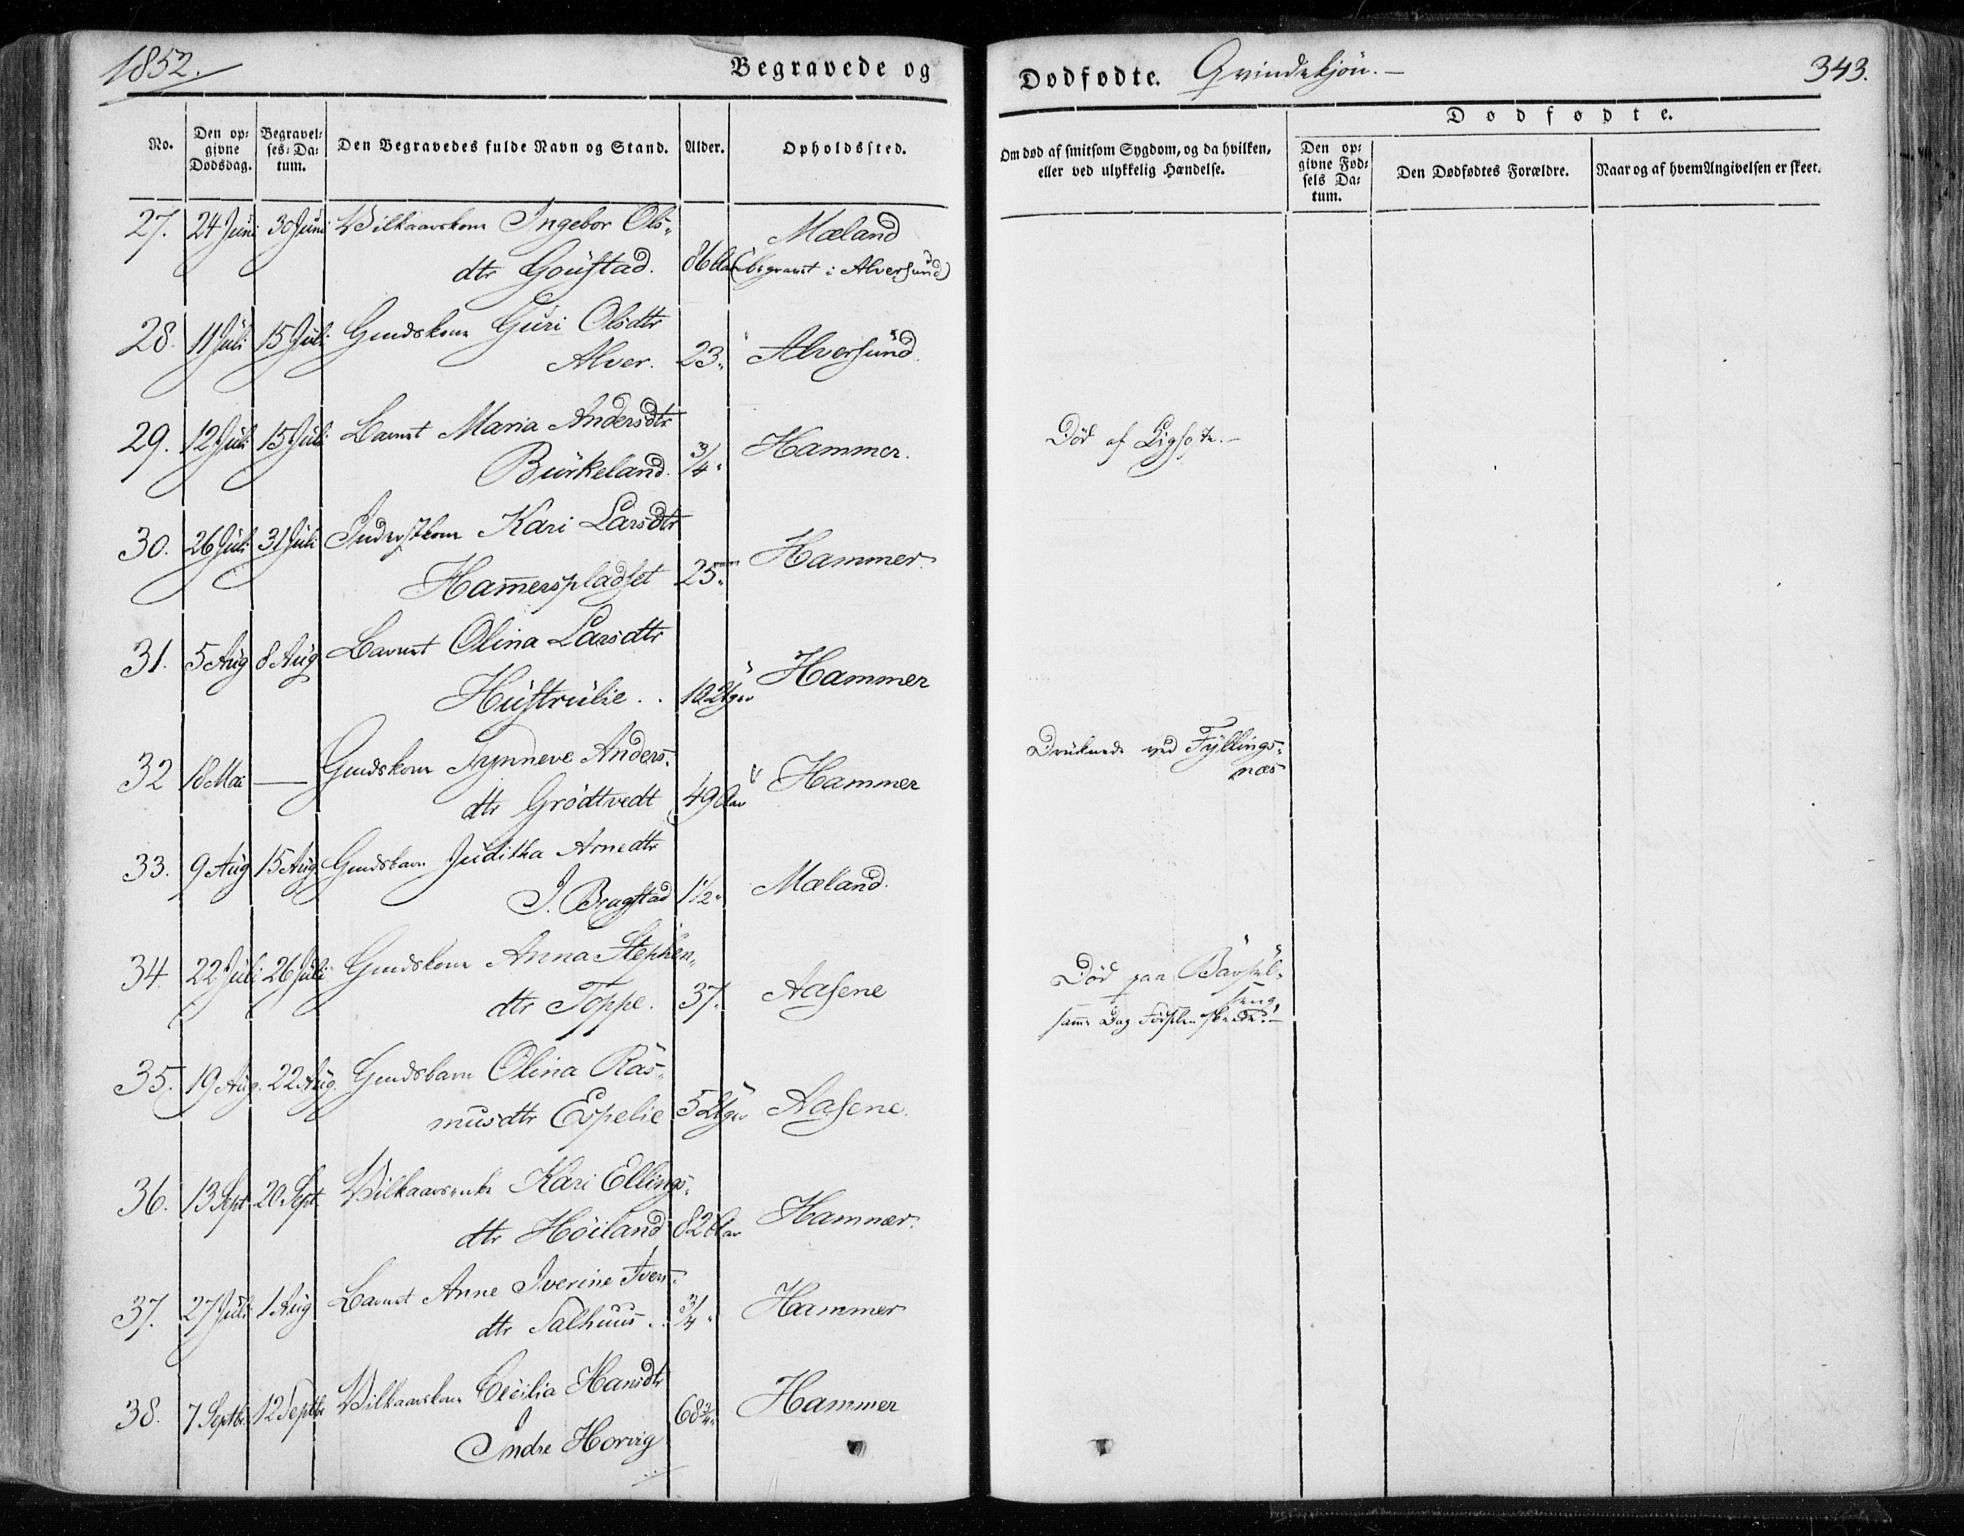 1852.
Begravede og
Dødfødte. Qvindekjøn.
343.
No.
Den op-
givne
Dødsdag.
Begravel-
ses-Da-
tum.
Den Begravedes fulde Navn og Stand.
Alder.
Opholdssted.
Om død af smitsom Sygdom, og da hvilken,
eller ved ulykkelig Hændelse.
Dødfødte.
Den op-
givne Fød-
sels Da-
tum.
Den Dødfødtes Forældre.
Naar og af hvem Angivelsen er skeet.
27. 24 Juni 30 Juni Vilkaarskone Ingebor Ols-
dtr Goustad. 86 Aar Mæland
(begravet i Alversund)
28. 11 Juli 15 Juli Gmdskone Guri Olsdtr
Alver. 23. Alversund.
29. 12 Juli 15 Juli Barnet Maria Andersdtr
Burkeland. 3/4 Hammer.
Død af
30. 26 Juli 31 Juli Inderstkone Kari Larsdtr
Hammerspladset 25 Hammer.
31. 5 Aug 8 Aug Barnet Olina Larsdtr
Hustrulie 10 Uger Hammer
32 18 Mai — Gmdskone Synneve Anders-
dtr Grødtvedt 49 Aar Hammer
Druknede ved Fyllings-
næs
33. 9 Aug 15 Aug. Gmdsbarn Juditha Arnedtr
I. Bragstad 1 1/2 Mæland.
34. 22 Juli 26 Juli Gmdskone Anna Stephen-
dtr Toppe. 37. Aasene
Død paa Barsel-
seng,
samme Dag Fødselen skeede.
35. 19 Aug. 22 Aug. Gmdsbarn Olina Ras-
musdtr Espelie 5 Uger Aasene.
36. 13 Sept 20 Sept. Vilkaarsenke Kari Ellings-
dtr Høiland 82 Aar Hammer.
37. 27 Juli 1 Aug Barnet Anne Iverine Ivers-
dtr Salhuus 3/4 Hammer
38. 7 Septbr. 12 Septbr Vilkaarskone Cecilia Hansdtr
Indre Horvig 68 3/4 Hammer